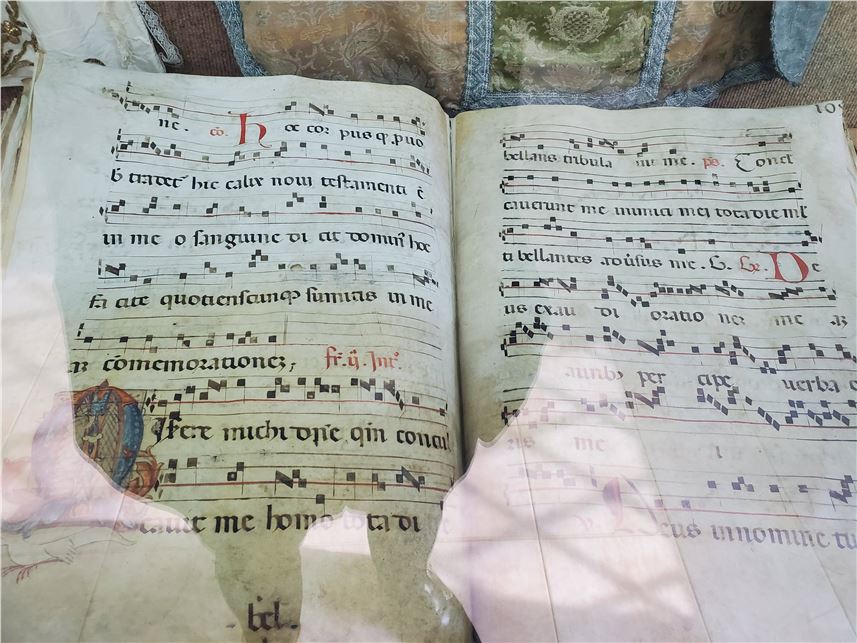 ne. co. hoc corpus q. pro
b tradet hic calix noui testamenti ē
in me o sanguine di cit domin hoc
fa cite quotienscunq sumitis in me
ar cōmemorationez, fr. ij. Int.
Iserere michi dne qm concul
cauit me homo tota di
bel.
105
bellans tribula uit me. ps. Concl
cauerunt me inimici mei tota die ml
ti bellantes adusus me. G. Gr. De
us exau di oratio nez me az
aurib per cipe uerba o
ris me i
v. Deus in nomine tu